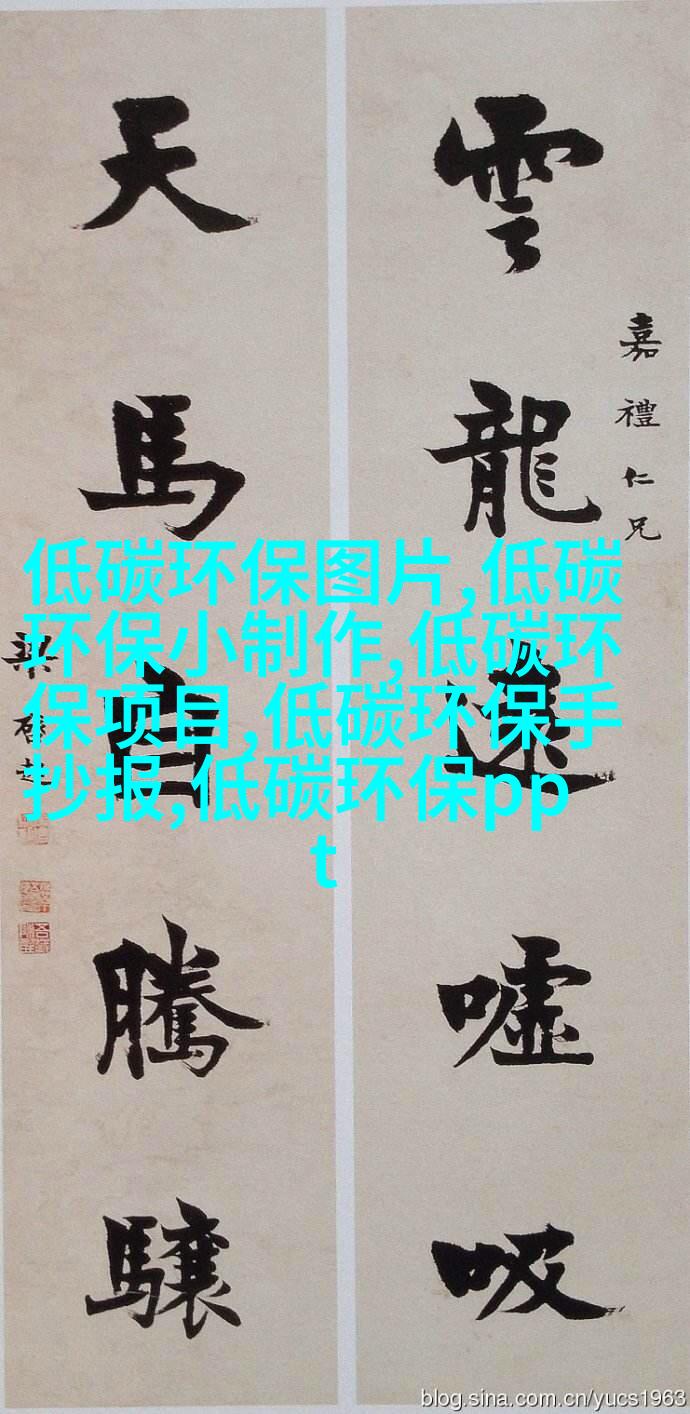 雲龍遠噓吸
嘉禮仁兄
天馬自騰驤
梁啓超
低碳环保图片,低碳
环保小制作,低碳环
保项目,低碳环保手
抄报,低碳环保pp
t
blog.sina.com.cn/yucs1963